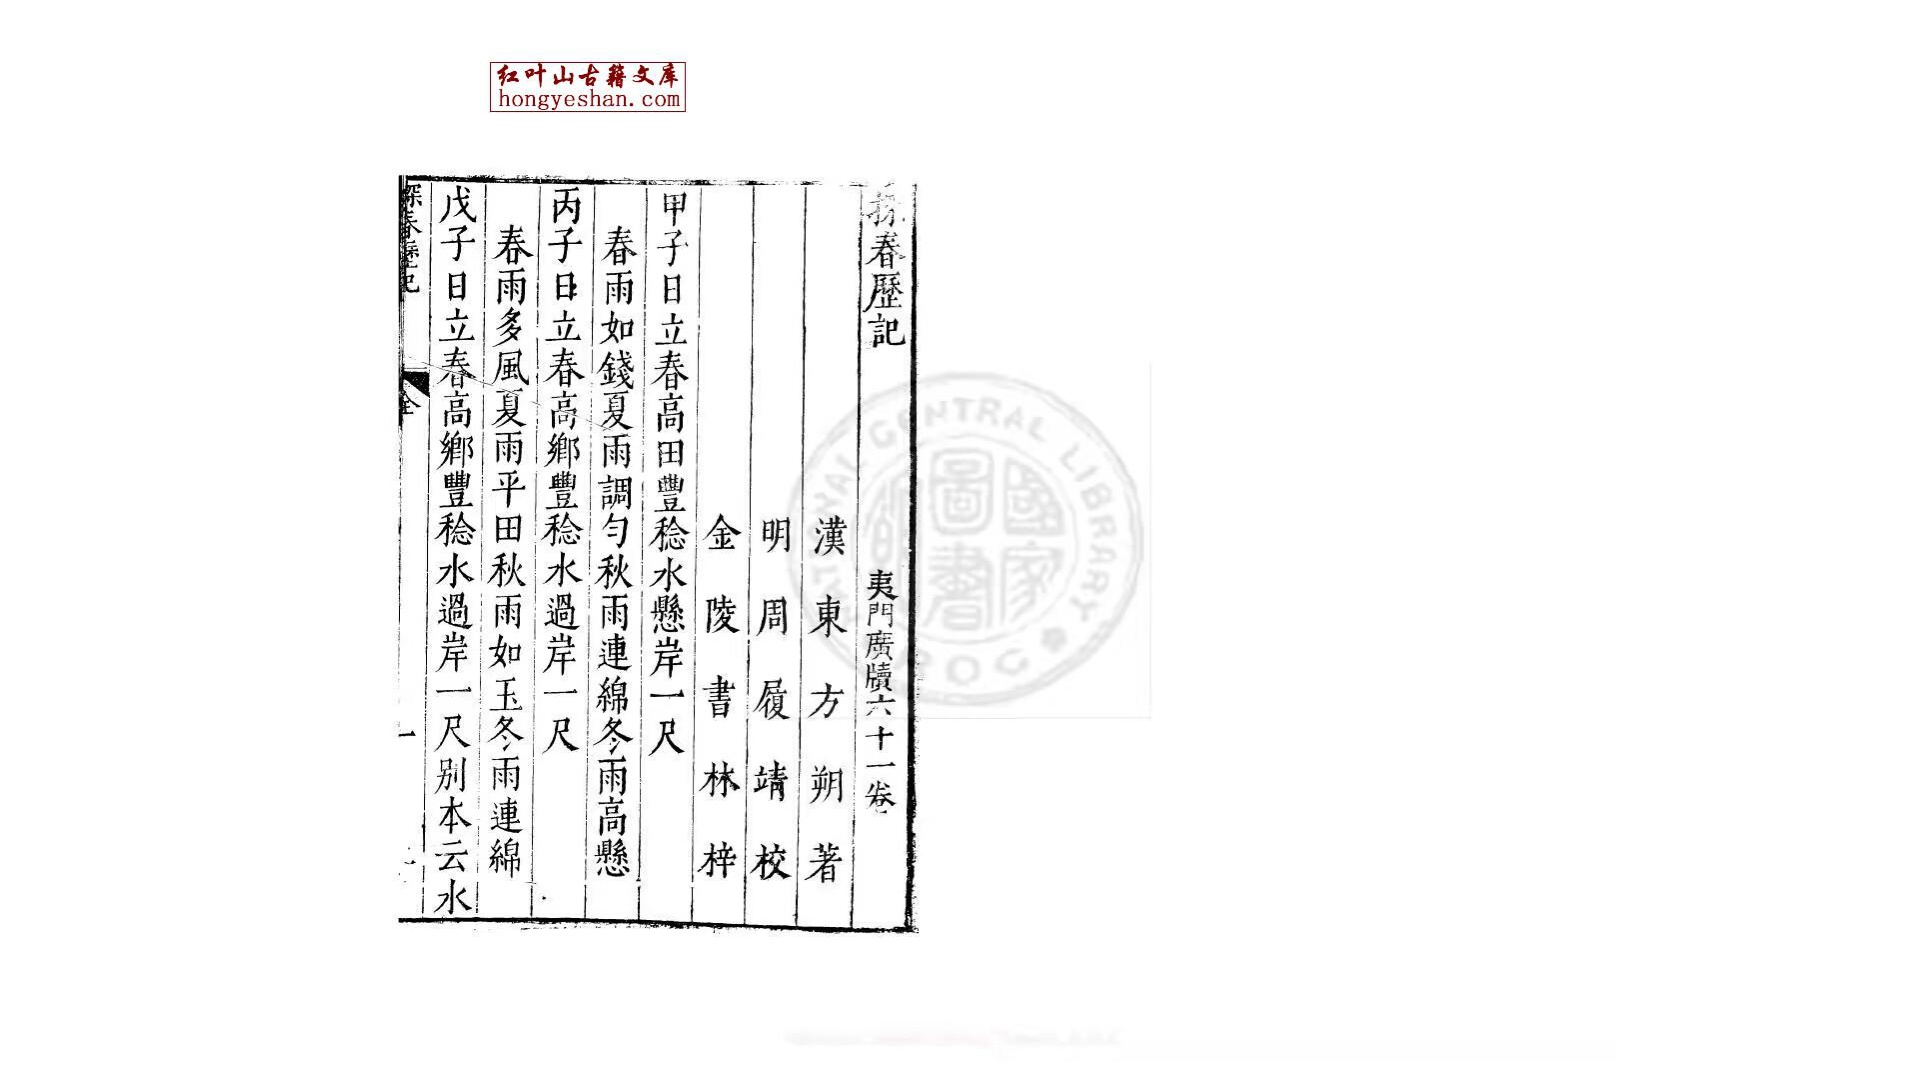 红叶山古籍文库
hongyeshan.com
探春歷記
夷門廣牘六十一卷
漢東方朔著
明周履靖校
金陵書林梓
甲子日立春高田豐稔水懸岸一尺
春雨如錢夏雨調勻秋雨連綿冬雨高懸
丙子日立春高鄉豐稔水過岸一尺
春雨多風夏雨平田秋雨如玉冬雨連綿
戊子日立春高鄉豐稔水過岸一尺別本云水
探春歷記
全
一
NATIONAL CENTRAL LIBRARY
R.O.C.
國家圖書館